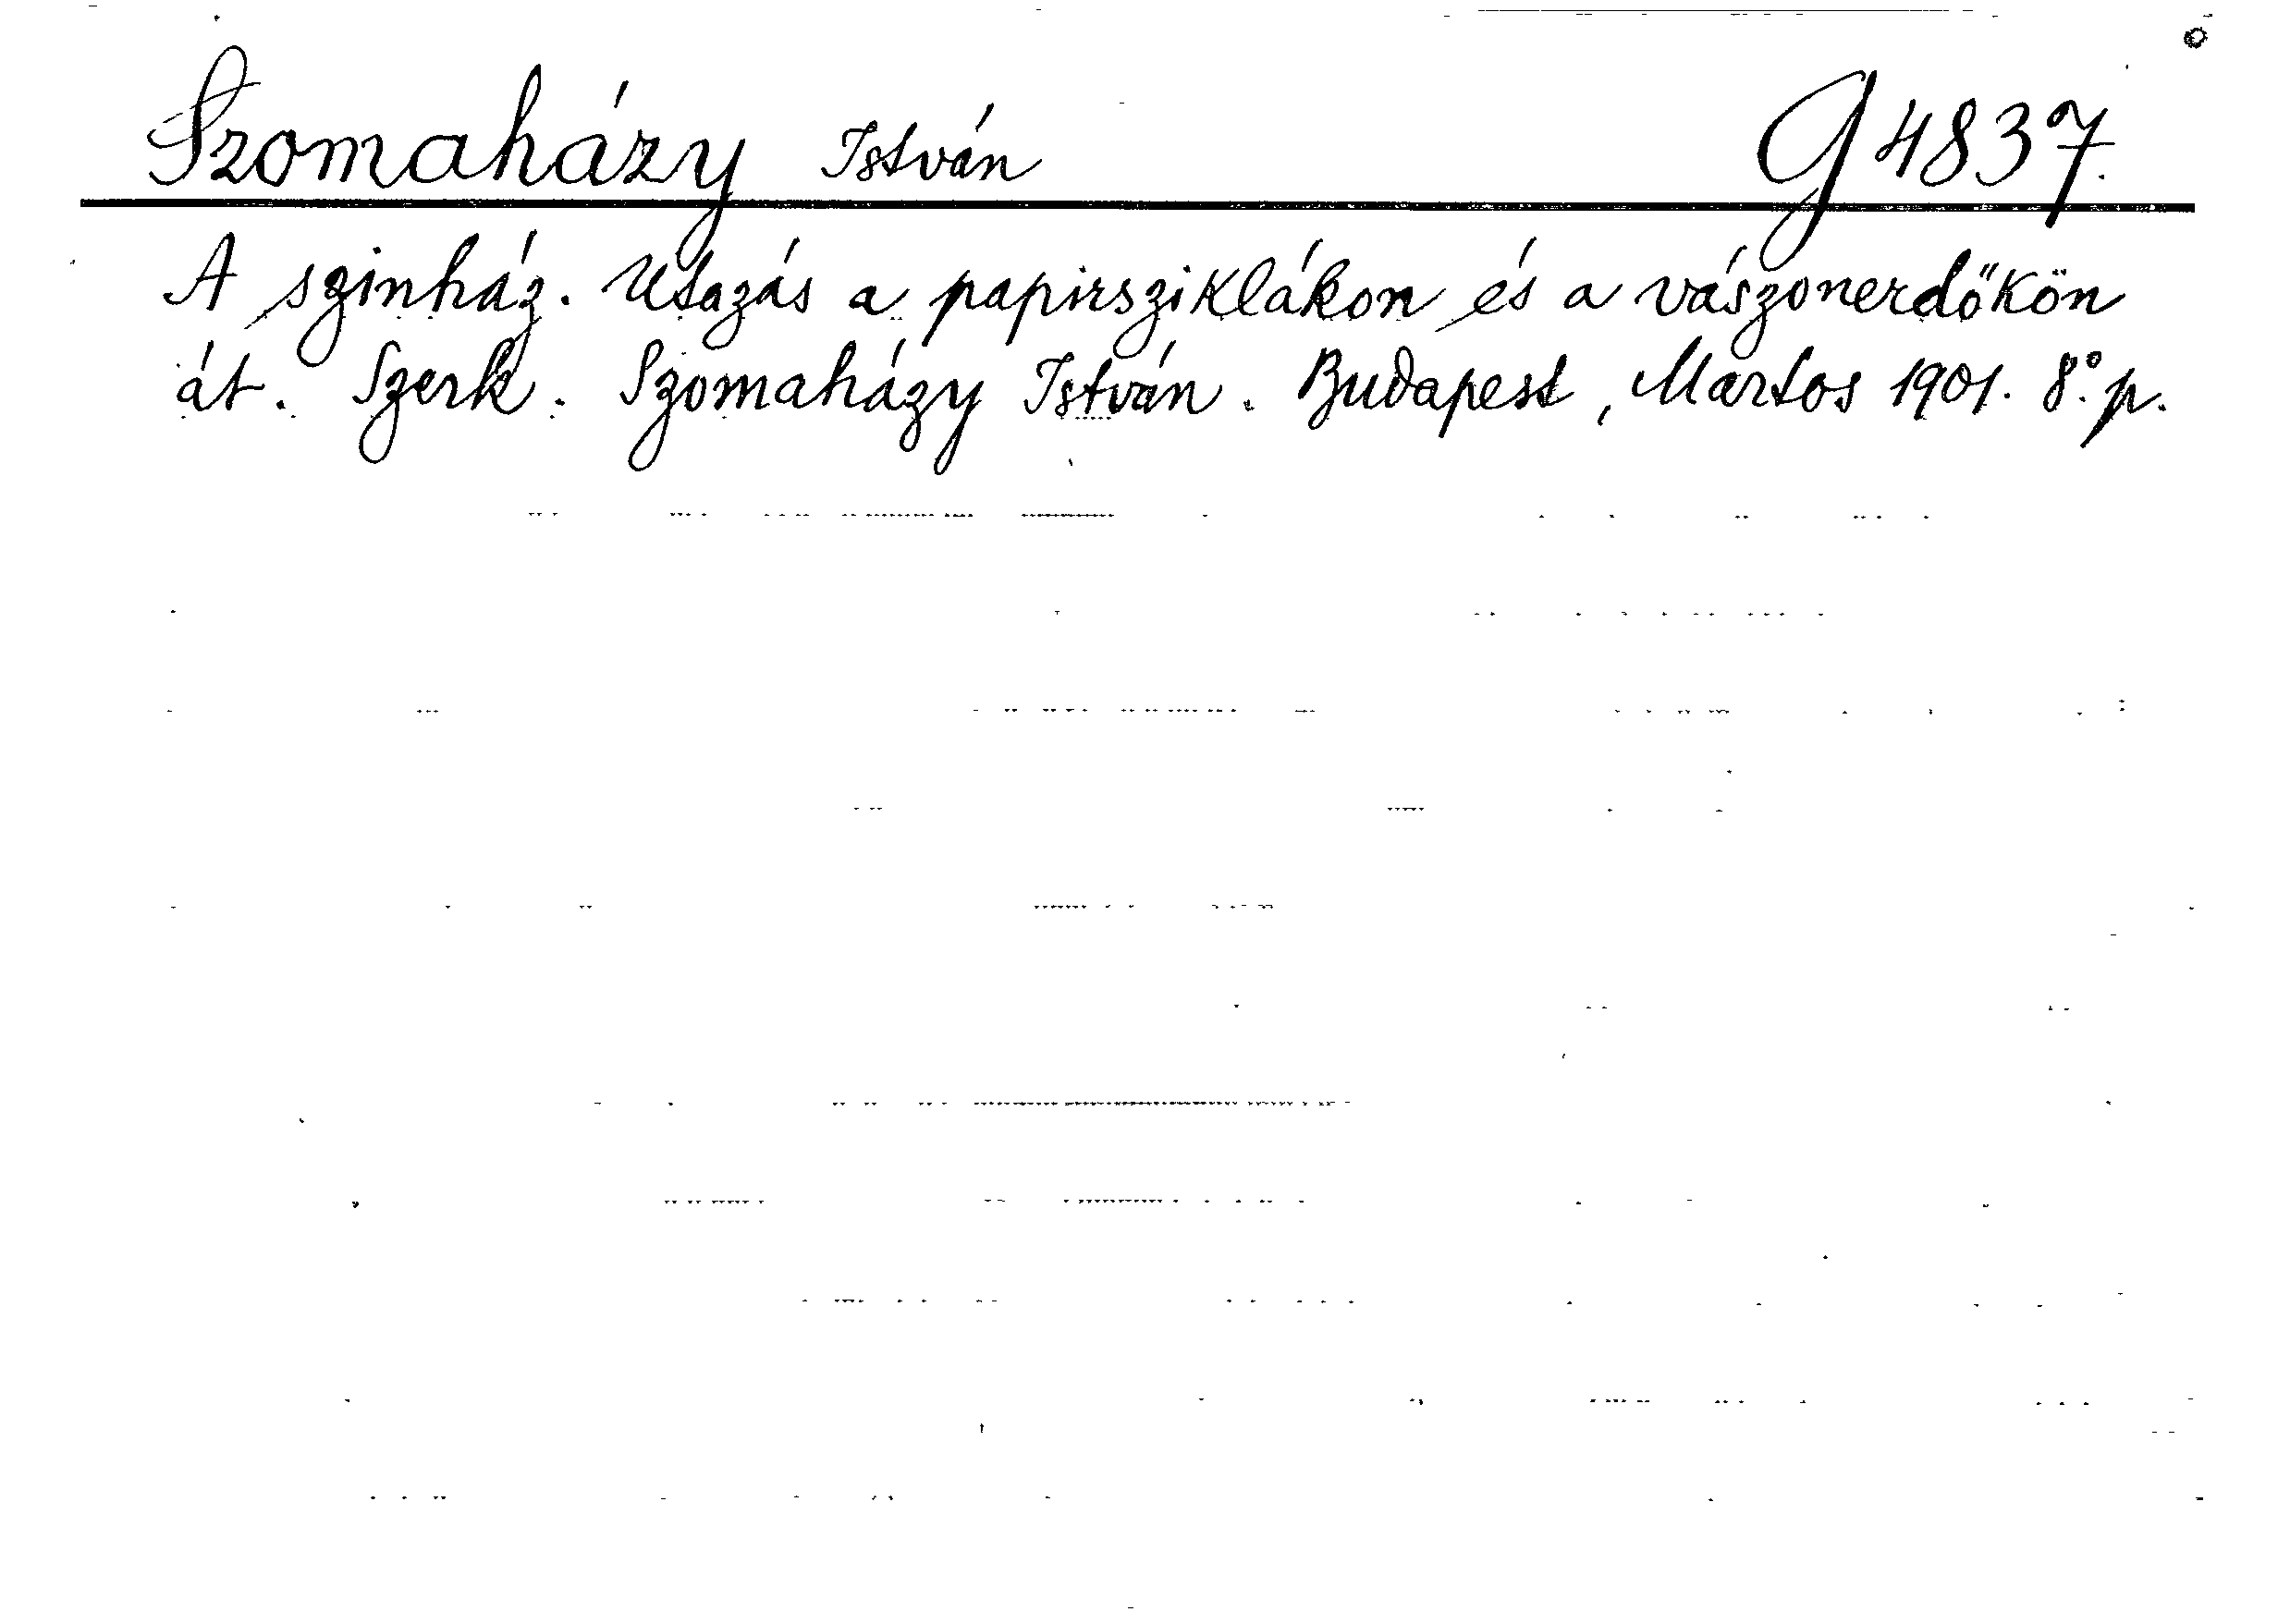 Szomaházy István G 4837.
A szinház. Utazás a papirsziklákon és a vászonerdőkön
át. Szerk. Szomaházy István. Budapest, Martos 1901. 8° p.